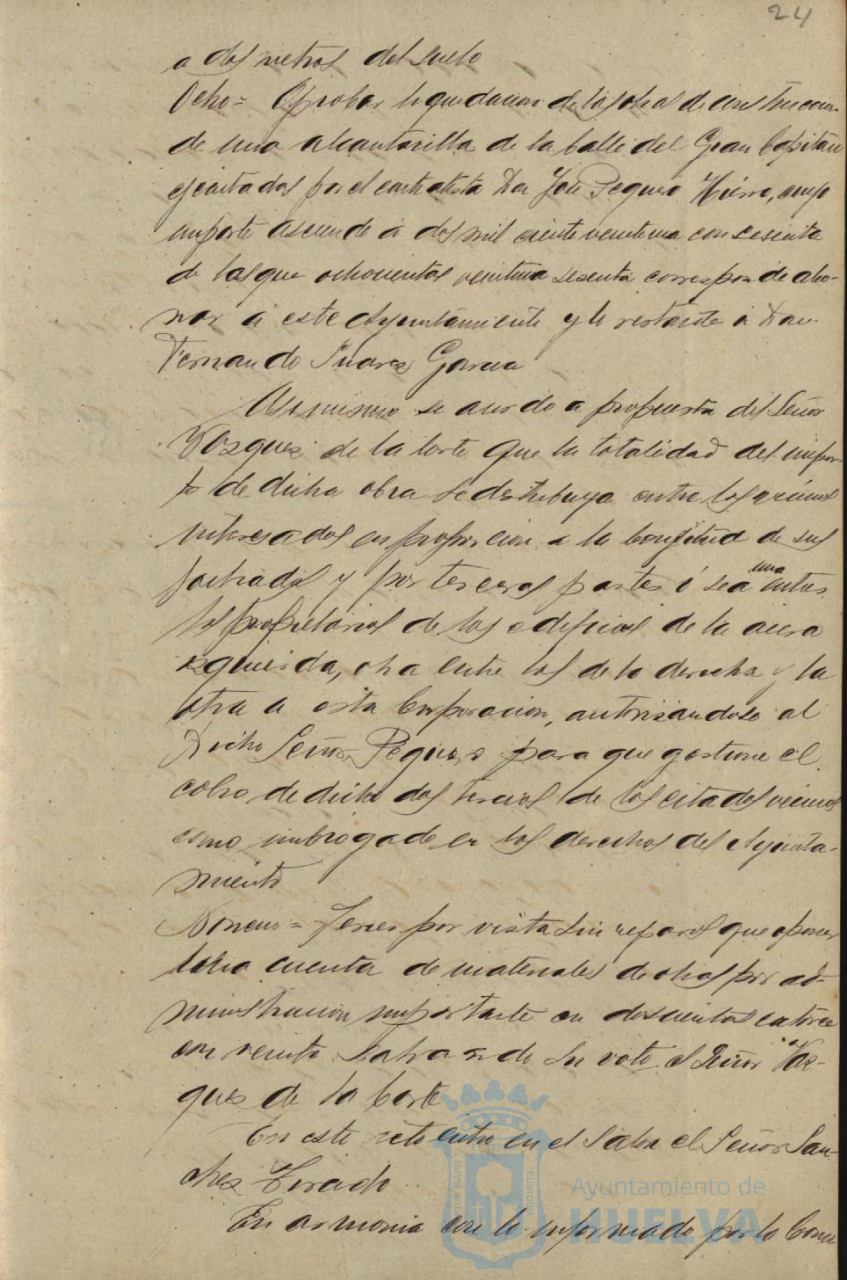 24
a dos metros del suelo
Ocho = Aprobar liquidacion de las obras de construccion
de una alcantarilla de la Calle del Gran Capitan
ejecutadas por el contratista Don José Peguero Hierro, cuyo
importe asciende á dos mil ciento veintiuna con sesenta
de las que ochocientas veintiuna sesenta corresponde abo-
nar á este Ayuntamiento y lo restante á Don
Fernando Suarez Garcia
Asimismo se acordo a propuesta del Señor
Vazquez de la Corte que la totalidad del impor-
te de dicha obra se distribuya entre los vecinos
interesados en proporcion a la longitud de sus
fachadas y por terceras partes ó sea una entre
los propietarios de los edificios de la acera
izquierda, otra entre los de la derecha y la
otra a esta Corporacion, autorizandose al
dicho Señor Peguero para que gestione el
cobro de dichos dos tercios de los citados vecinos
como subrogado en los derechos del Ayunta-
miento
Noveno = Tener por vista sin reparos que oponer
la cuenta de materiales de obras por ad-
ministracion importante en doscientas catorce
con veinte salvando su voto el Señor Vaz-
quez de la Corte
En este acto entra en el Salon el Señor San-
chez Tirado
En armonia con lo informado por la Comi
Ayuntamiento de
HUELVA